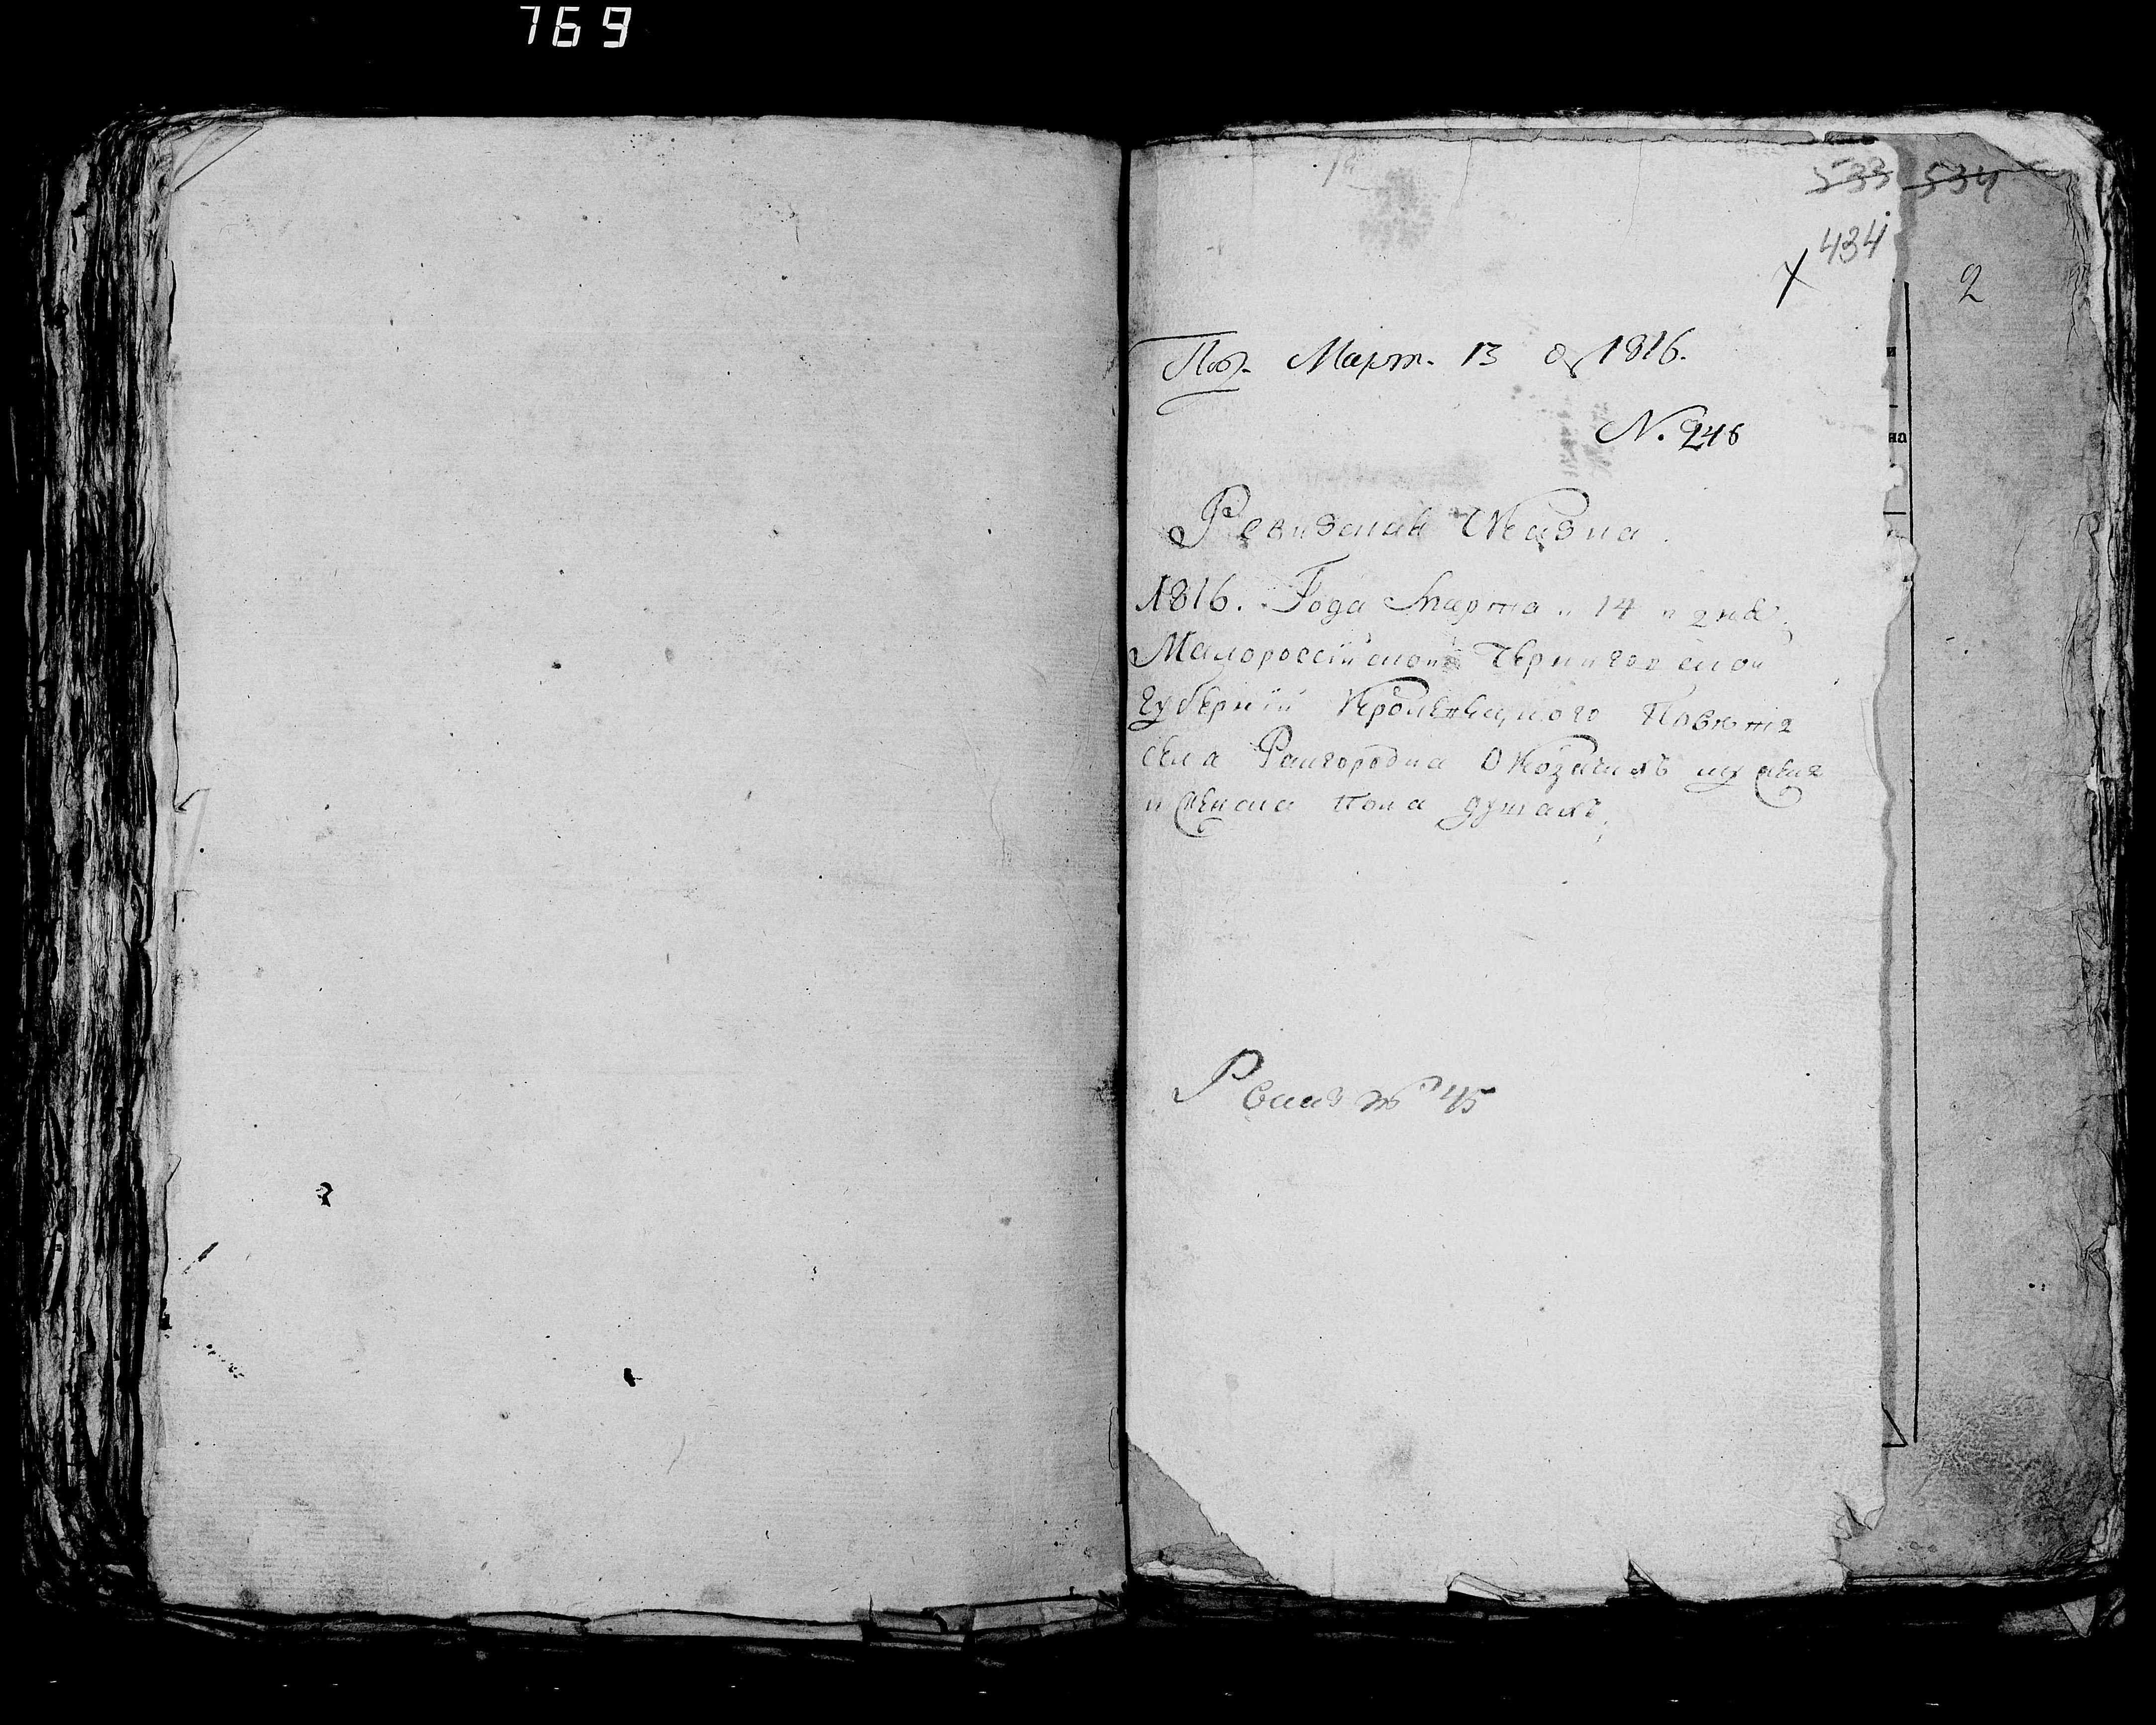 769
533 534
434
2
Март. 13 1816.
N. 246
Ревизская Сказка
1816. Года Марта 14 дня
Малороссійской Черниговской
Губерніи Кролевецкого Повета
села Райгородка О Козакахъ мужеска
и женска пола душахъ
45